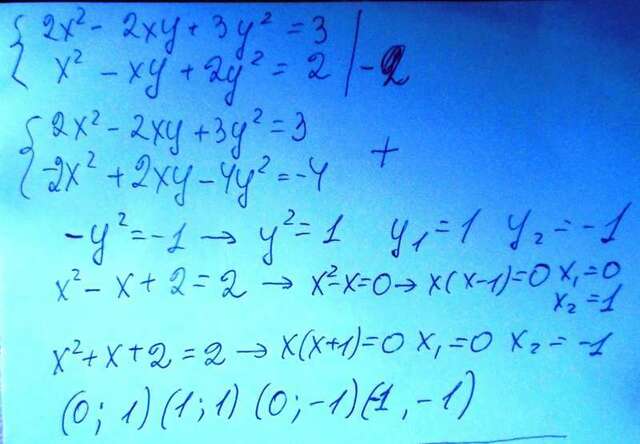 2x² - 2xy + 3y² = 3
x² - xy + 2y² = 2 | -2
2x² - 2xy + 3y² = 3
-2x² + 2xy - 4y² = -4 +
-y² = -1 → y² = 1 y₁ = 1 y₂ = -1
x² - x + 2 = 2 → x² - x = 0 → x(x-1) = 0 x₁ = 0
x₂ = 1
x² + x + 2 = 2 → x(x+1) = 0 x₁ = 0 x₂ = -1
(0; 1) (1; 1) (0; -1) (-1, -1)